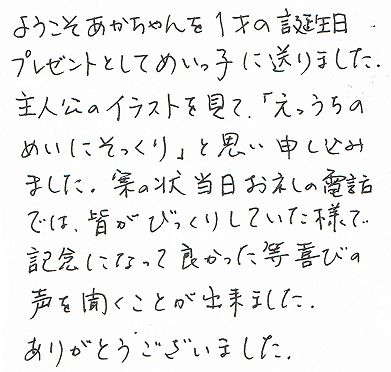 ようこそあかちゃんを1才の誕生日
プレゼントとしてめいっ子に送りました.
主人公のイラストを見て、「えっうちの
めいにそっくり」と思い申し込み
ました. 案の状当日お礼の電話
では、皆がびっくりしていた様で
記念になって良かった等喜びの
声を聞くことが出来ました.
ありがとうございました.